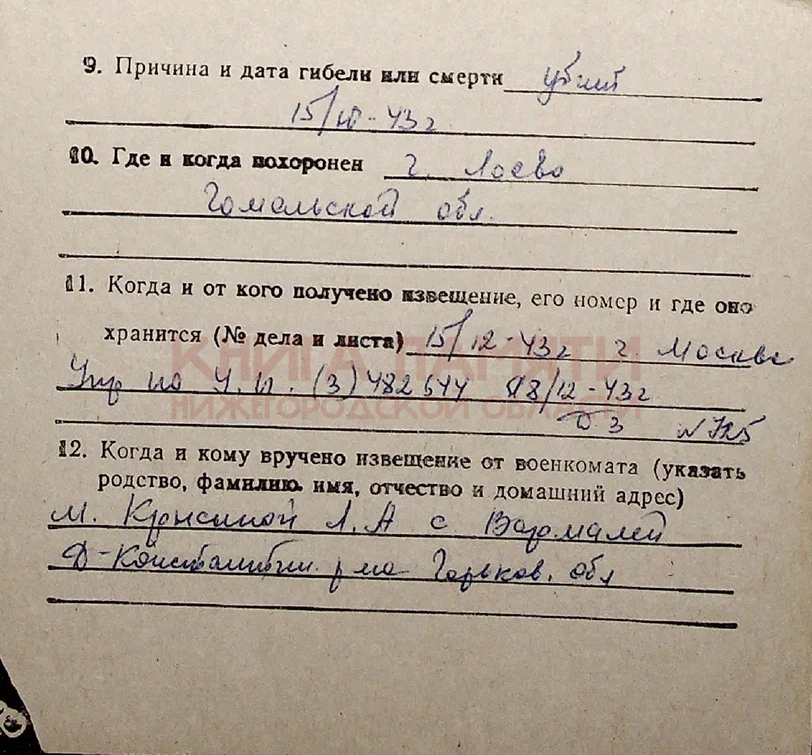 9. Причина и дата гибели или смерти убит
15/10-43г
10. Где и когда похоронен г. Лоево
Гомельской обл.
11. Когда и от кого получено извещение, его номер и где оно
хранится (№ дела и листа) 15/12-43г г. Москва
Упр по У.П. (3) 482644 18/12-43г
КНИГА ПАМЯТИ
НИЖЕГОРОДСКОЙ ОБЛАСТИ
D 3 N 725
12. Когда и кому вручено извещение от военкомата (указать
родство, фамилию, имя, отчество и домашний адрес)
м. Крысиной Л.А с Вармалей
Д-Константин. р-на Горьков. обл